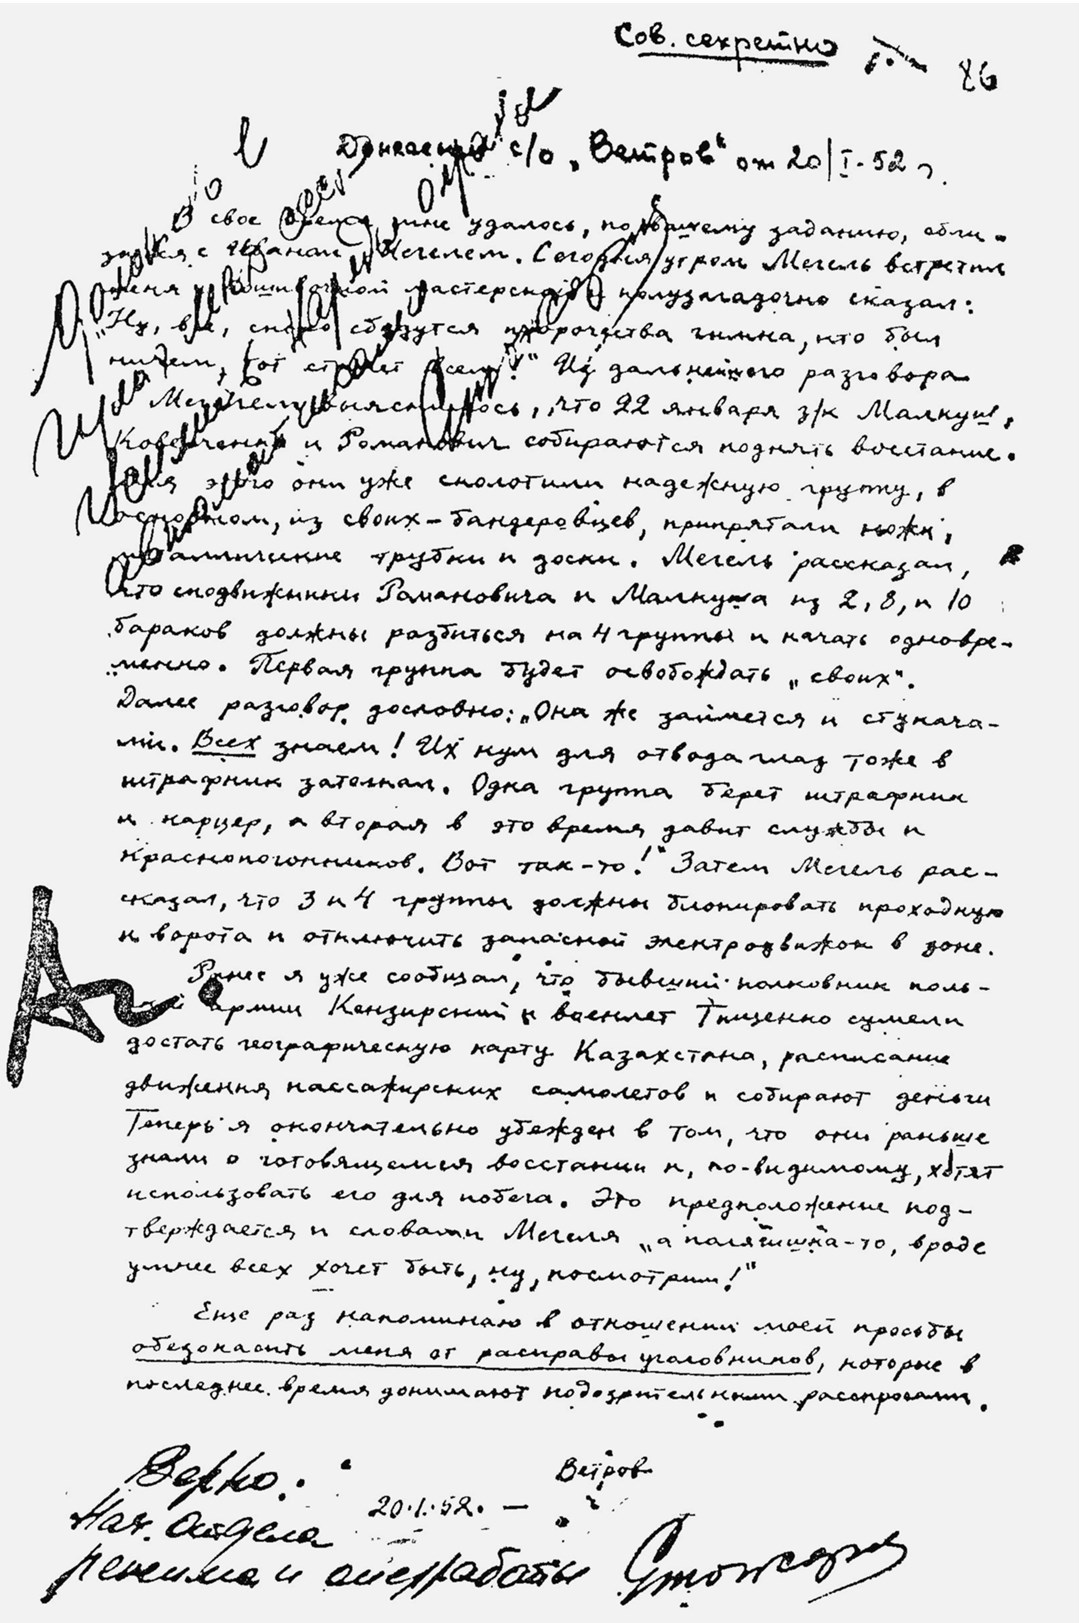 Сов. секретно
86
Донесение с/о „Ветров“ от 20/I-52 г.
В свое время мне удалось, по Вашему заданию, сбли-
зиться с Иваном Мегелем. Сегодня утром Мегель встретил
меня у пошивочной мастерской и полузагадочно сказал:
„Ну, все, скоро сбудутся пророчества гимна, кто был
ничем, тот станет всем!“ Из дальнейшего разговора
с Мегелем выяснилось, что 22 января з/к Малкуш,
Коверченко и Романович собираются поднять восстание.
Для этого они уже сколотили надежную группу, в
основном, из своих-бандеровцев, припрятали ножи,
металлические трубки и доски. Мегель рассказал,
что сподвижники Романовича и Малкуша из 2, 8, и 10
бараков должны разбиться на 4 группы и начать одновре-
менно. Первая группа будет освобождать „своих“.
Далее разговор дословно: „Она же займется и стукача-
ми. Всех знаем! Их кум для отвода глаз тоже в
штрафник затолкал. Одна группа берет штрафник
и карцер, а вторая в это время давит службы и
краснопогонников. Вот так-то!“ Затем Мегель рас-
сказал, что 3 и 4 группы должны блокировать проходную
и ворота и отключить запасной электродвижок в зоне.
Ранее я уже сообщал, что бывший полковник поль-
ской армии Кензирский и военлет Тищенко сумели
достать географическую карту Казахстана, расписание
движения пассажирских самолетов и собирают деньги
Теперь я окончательно убежден в том, что они раньше
знали о готовящемся восстании и, по-видимому, хотят
использовать его для побега. Это предположение под-
тверждается и словами Мегеля „а полячишка-то, вроде
умнее всех хочет быть, ну, посмотрим!“
Еще раз напоминаю в отношении моей просьбы
обезопасить меня от расправы уголовников, которые в
последнее время донимают подозрительными расспросами.
Ветров
20.I.52. —
Верно:
Нач. Отдела
режима и оперработы Стожаров